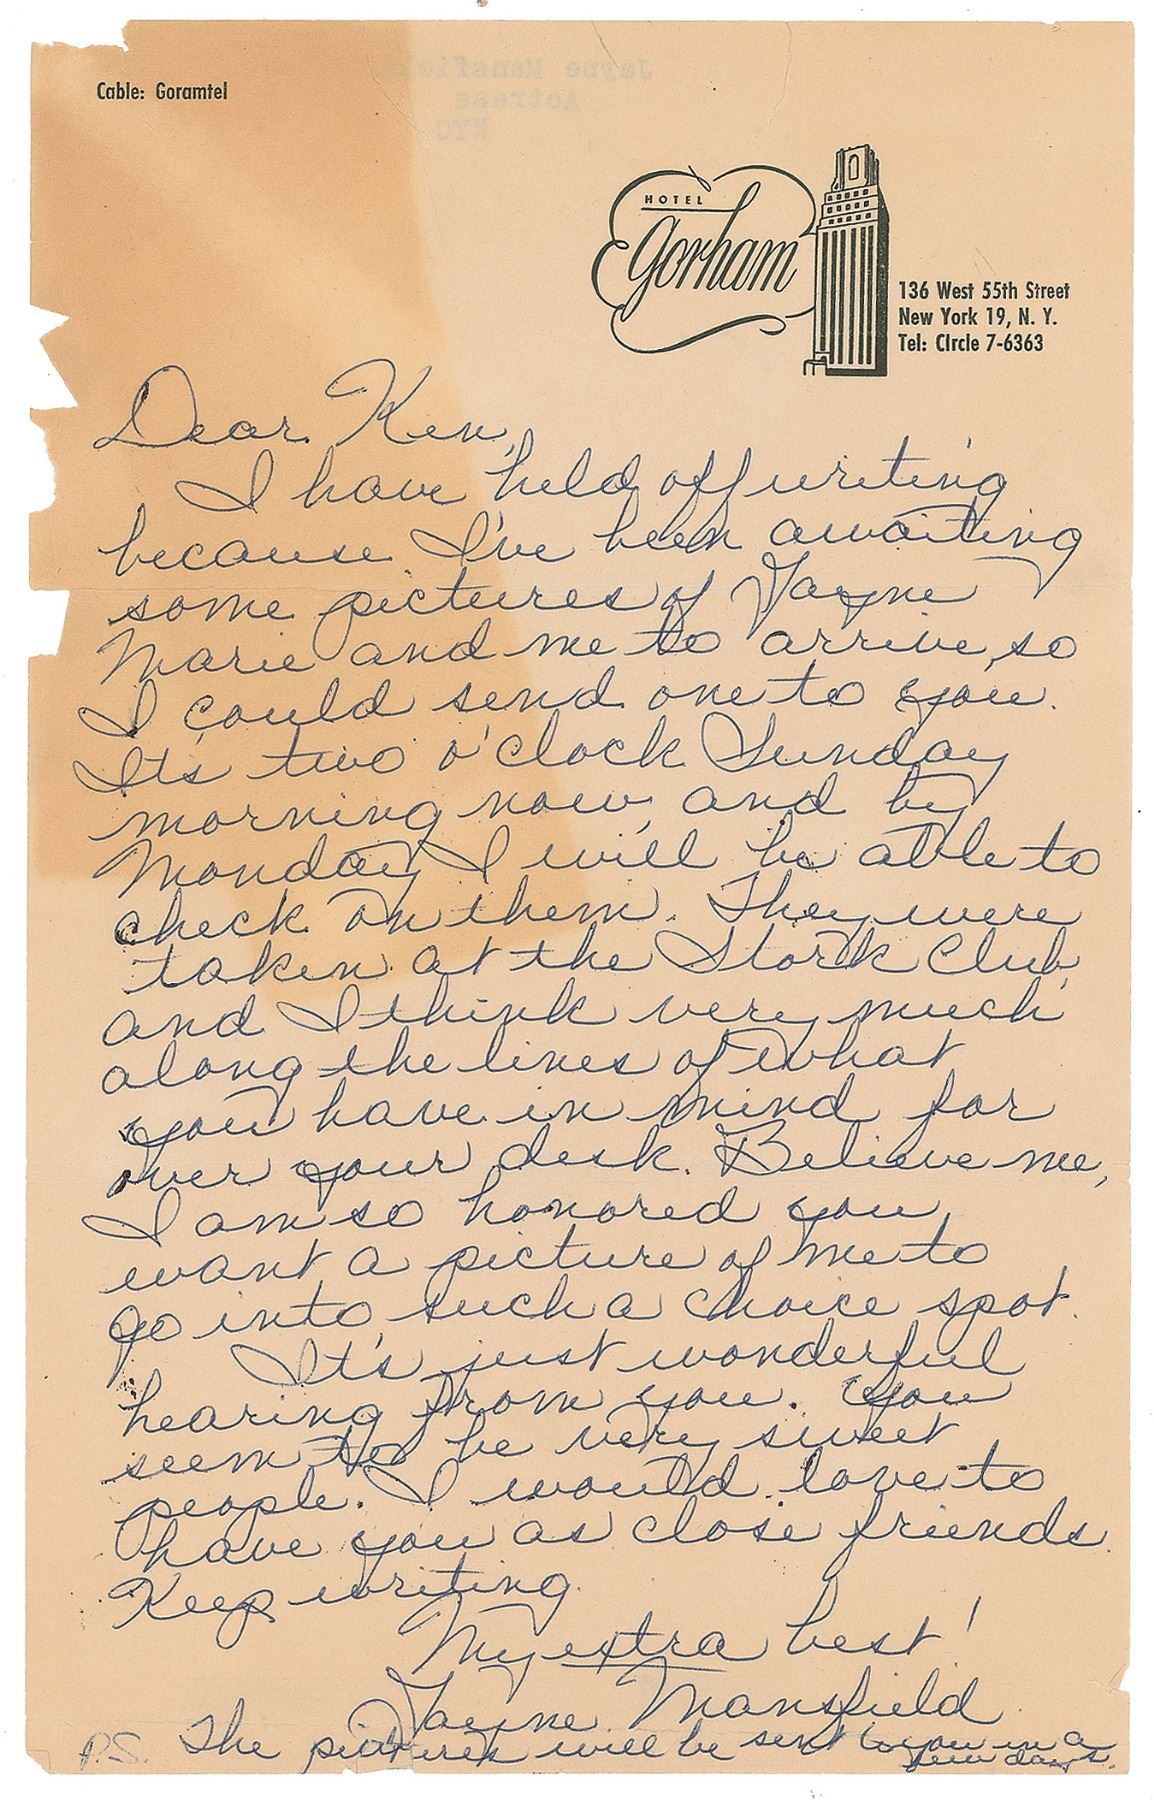 Jayne Mansfield
Actress
NYC
Cable: Goramtel
HOTEL
Gorham
136 West 55th Street
New York 19, N. Y.
Tel: CIrcle 7-6363
Dear Ken,
I have held off writing
because I've been awaiting
some pictures of Jayne
Marie and me to arrive, so
I could send one to you.
It's two o'clock Sunday
morning now, and by
Monday I will be able to
check on them. They were
taken at the Stork Club,
and I think very much
along the lines of what
you have in mind for
over your desk. Believe me,
I am so honored you
want a picture of me to
go into such a choice spot.
It's just wonderful
hearing from you. You
seem to be very sweet
people. I would love to
have you as close friends.
Keep writing.
My extra best!
Jayne Mansfield
P.S. The pictures will be sent to you in a
few days.